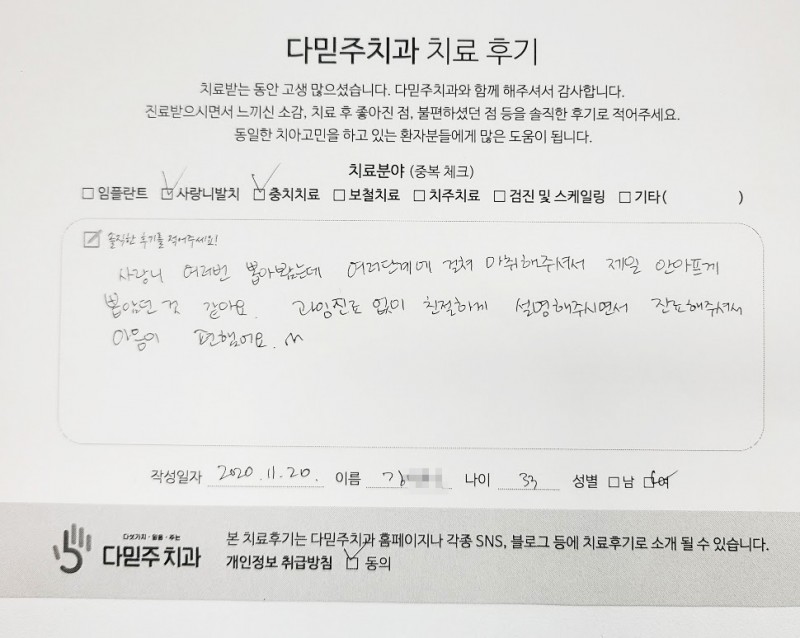 다믿주치과 치료 후기
치료받는 동안 고생 많으셨습니다. 다믿주치과와 함께 해주셔서 감사합니다.
진료받으시면서 느끼신 소감, 치료 후 좋아진 점, 불편하셨던 점 등을 솔직한 후기로 적어주세요.
동일한 치아고민을 하고 있는 환자분들에게 많은 도움이 됩니다.
치료분야 (중복 체크)
임플란트 사랑니발치 충치치료 보철치료 치주치료 검진 및 스케일링 기타( )
솔직한 후기를 적어주세요!
사랑니 여러번 뽑아봤는데 여러단계에 걸쳐 마취해주셔서 제일 안아프게
뽑았던 것 같아요. 과잉진료 없이 친절하게 설명해주시면서 진료해주셔서
마음이 편했어요. ^^
작성일자 2020.11.20. 이름 김 나이 33 성별 남 여
다섯가지·믿음·주는
다믿주치과
본 치료후기는 다믿주치과 홈페이지나 각종 SNS, 블로그 등에 치료후기로 소개 될 수 있습니다.
개인정보 취급방침 동의